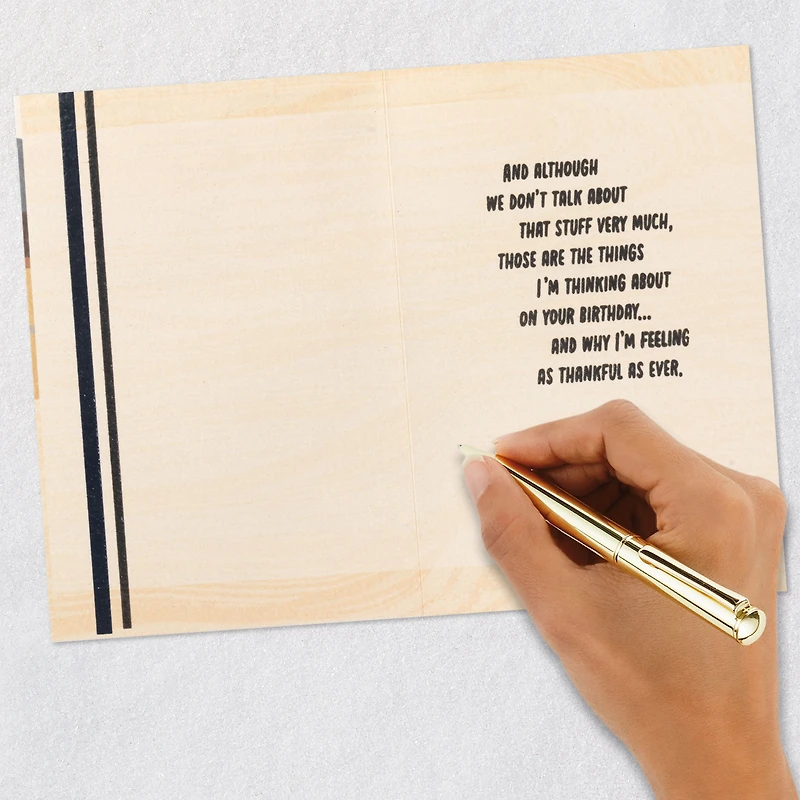 AND ALTHOUGH
WE DON'T TALK ABOUT
THAT STUFF VERY MUCH,
THOSE ARE THE THINGS
I'M THINKING ABOUT
ON YOUR BIRTHDAY...
AND WHY I'M FEELING
AS THANKFUL AS EVER.